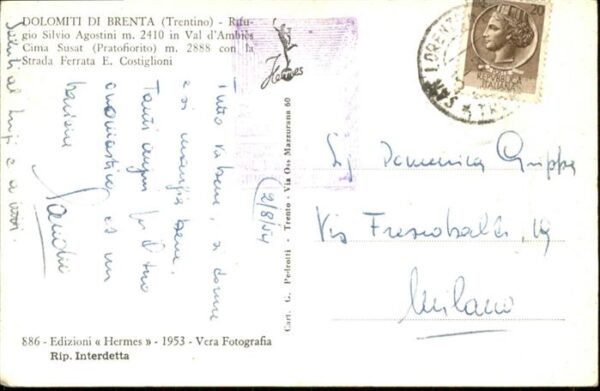 DOLOMITI DI BRENTA (Trentino) - Rifu-
gio Silvio Agostini m. 2410 in Val d'Ambies
Cima Susat (Pratofiorito) m. 2888 con la
Strada Ferrata E. Castiglioni
Hermes
tutto va bene, si dorme
e si mangia bene,
Tanti auguri per il tuo
onomastico e un
bacione
Saluti al
e a
(2/8/54
Cart. G. Pedrotti - Trento - Via Oss Mazzurana 60
SAN LORENZO
Domenica
Via Frescobaldi, 19
Milano
886 - Edizioni « Hermes » - 1953 - Vera Fotografia
Rip. Interdetta